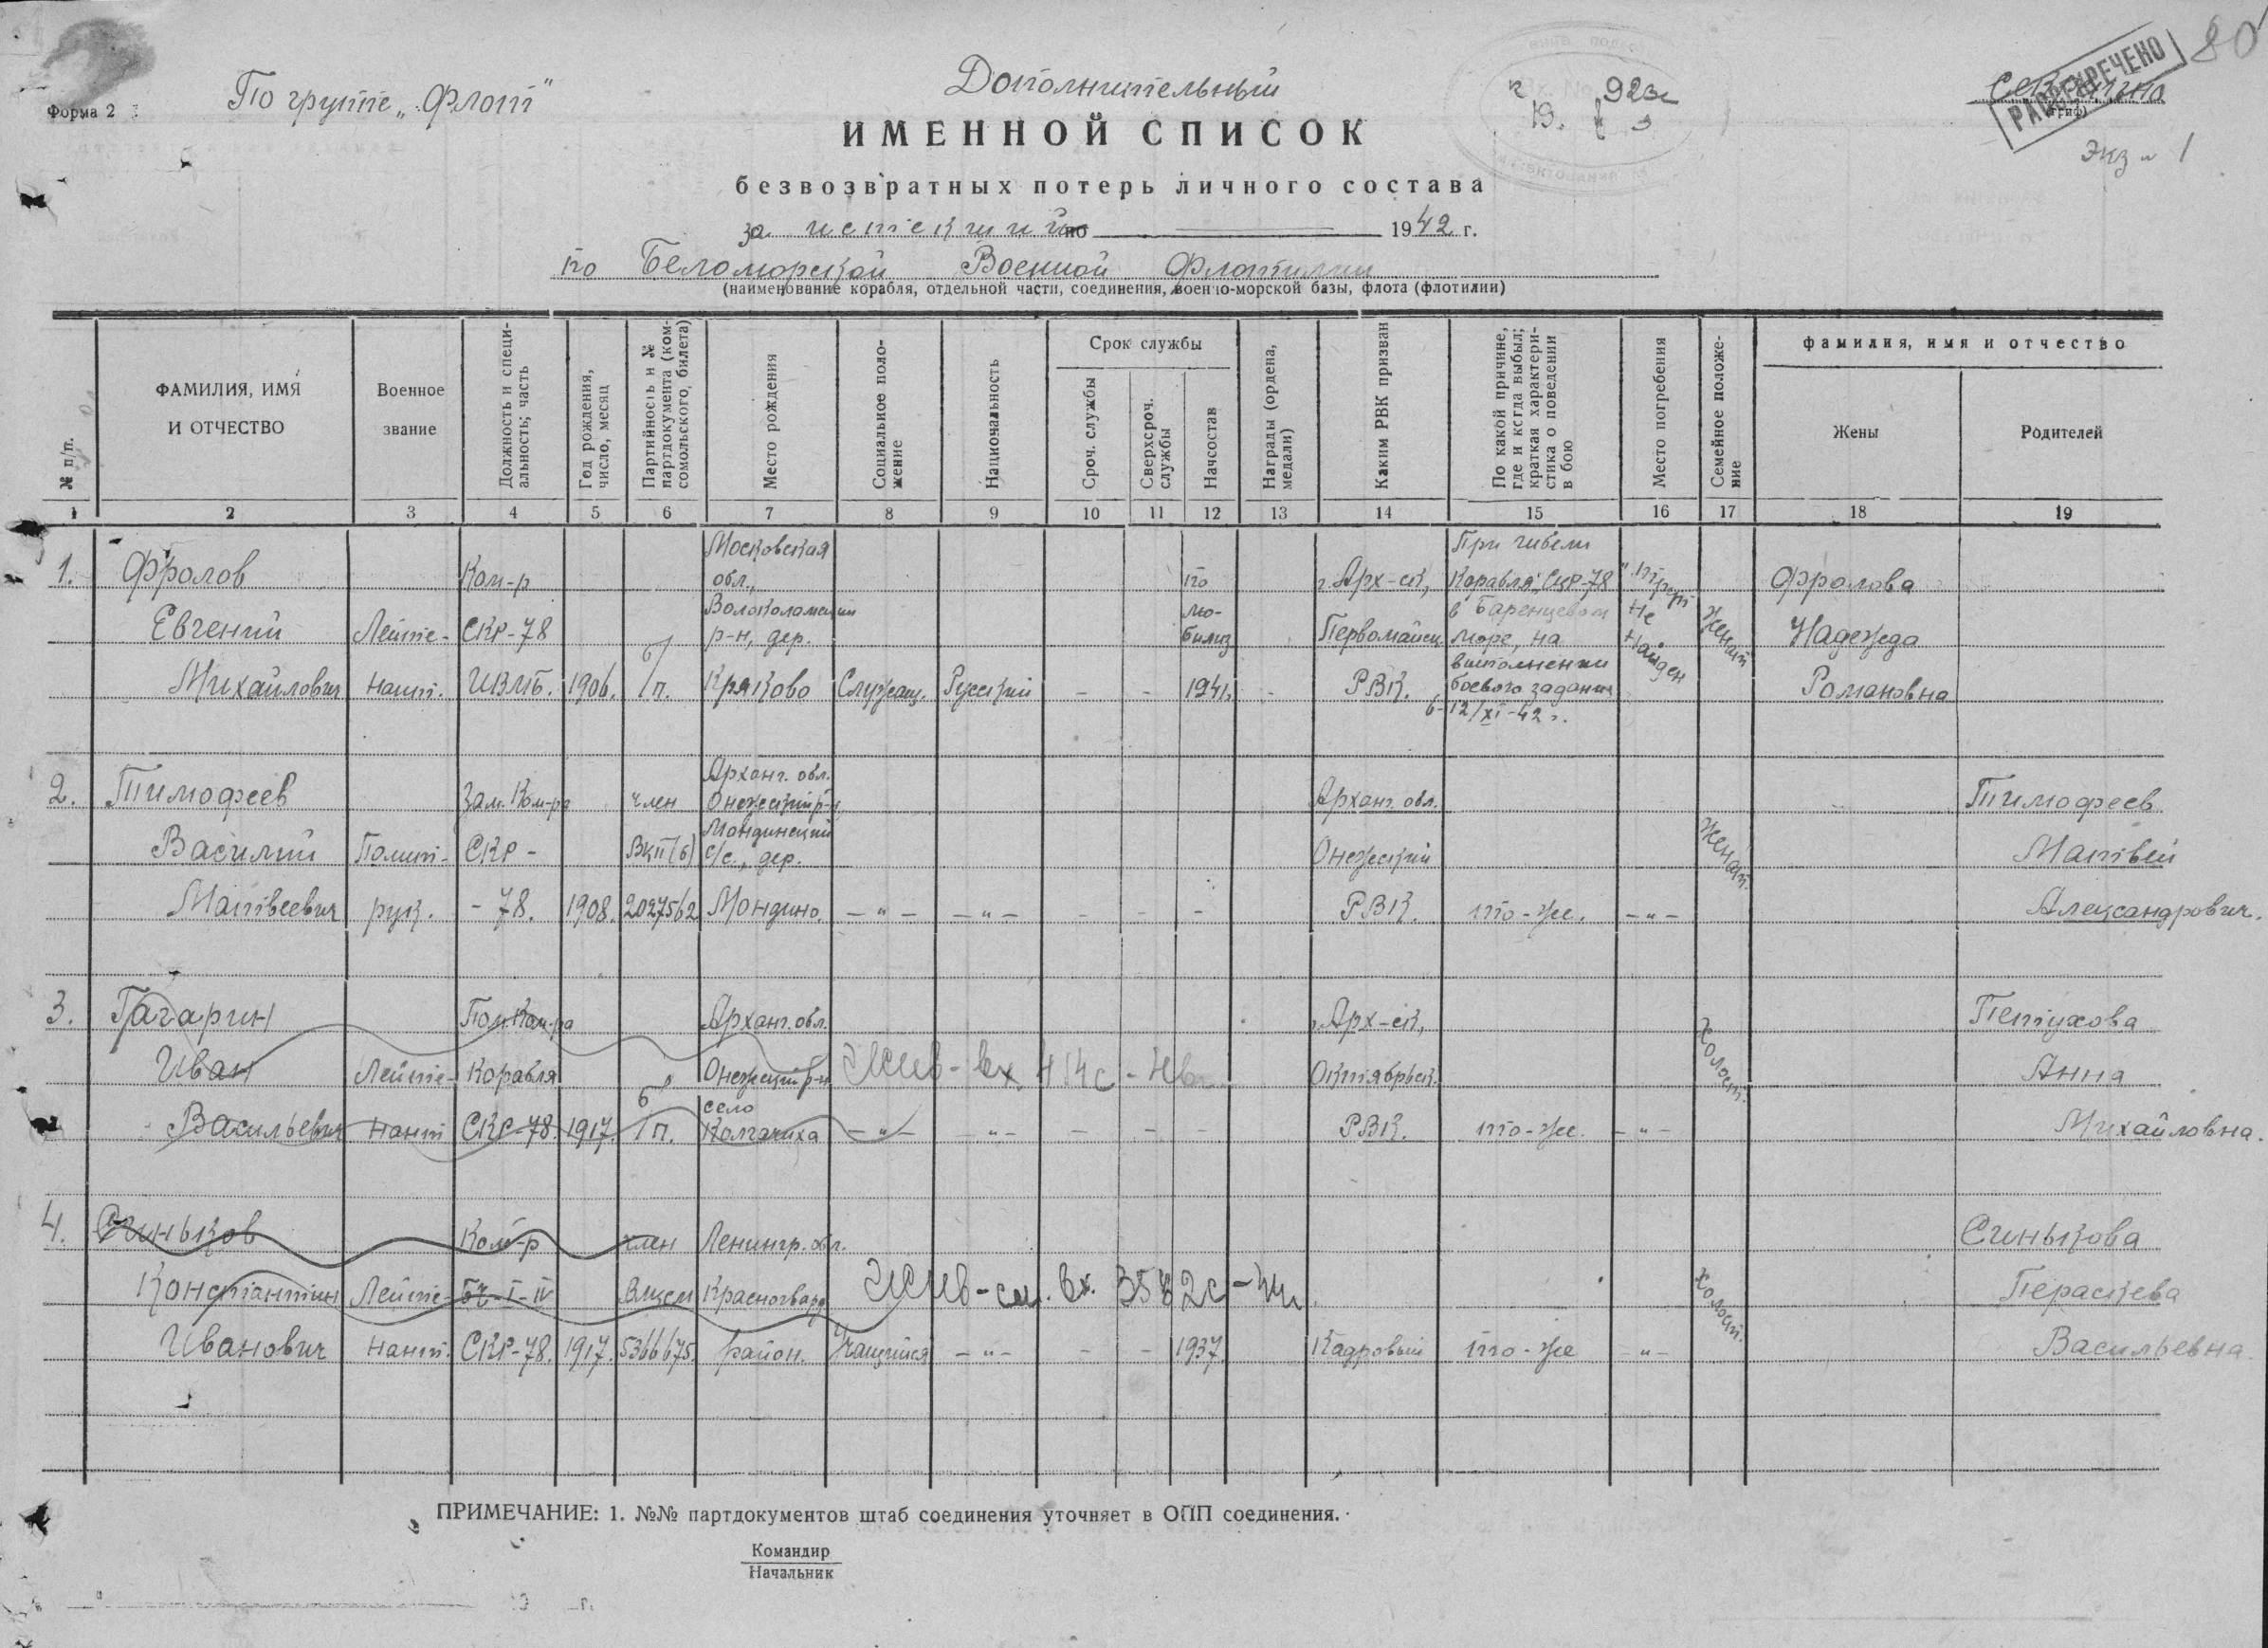 Форма 2
По группе „Флот"
Дополнительный
Секретно
(гриф)
РАССЕКРЕЧЕНО
80
Экз № 1
ИМЕННОЙ СПИСОК
безвозвратных потерь личного состава
за истекший по 1942 г.
по Беломорской Военной Флотилии
(наименование корабля, отдельной части, соединения, военно-морской базы, флота (флотилии)
№ п/п.
ФАМИЛИЯ, ИМЯ
И ОТЧЕСТВО
Военное
звание
Должность и специ-
альность; часть
Год рождения,
число, месяц
Партийность и №
партдокумента (ком-
сомольского, билета)
Место рождения
Социальное поло-
жение
Национальность
Срок службы
Сроч. службы
Сверхсроч.
службы
Начсостав
Награды (ордена,
медали)
Каким РВК призван
По какой причине,
где и когда выбыл;
краткая характери-
стика о поведении
в бою
Место погребения
Семейное положе-
ние
фамилия, имя и отчество
Жены
Родителей
1 2 3 4 5 6 7 8 9 10 11 12 13 14 15 16 17 18 19
1.
Фролов
Евгений
Михайлович
Лейте-
нант.
Ком-р
СКР-78
1906.
б/п.
Московская
обл.,
Волоколамский
р-н, дер.
Кряково
Служащ.
Русский
-
-
по
мо-
билиз
1941.
-
г. Арх-ск,
Первомайск.
РВК.
При гибели
корабля „СКР-78"
в Баренцевом
море, на
выполнении
боевого задания
6-12/XI-42 г.
Труп
не
найден
Женат
Фролова
Надежда
Романовна
2.
Тимофеев
Василий
Матвеевич
Полит-
рук.
Зам. Ком-ра
СКР-
-78.
1908.
член
ВКП(б)
2027562
Арханг. обл.
Онежский р-н
Мондинский
с/с., дер.
Мондино.
-"-
-"-
-
-
-
Арханг. обл.
Онежский
РВК.
то-же.
-"-
Женат.
Тимофеев
Матвей
Александрович.
3.
Гагарин
Иван
Васильевич
Лейте-
нант
Пом. Ком-ра
Корабля
СКР-78.
1917.
б/п.
Арханг. обл.
Онежский р-н
село
Колгачиха
Жив - вх.
-"-
-"-
-
-
-
г. Арх-ск,
Октябрьск.
РВК.
то-же.
-"-
Холост.
Петухова
Анна
Михайловна.
4.
Синьков
Константин
Иванович
Лейте-
нант.
Ком-р
БЧ-I-IV
СКР-78.
1917.
член
ВЛКСМ
5366675.
Ленингр. обл.
Красногвард
район.
Жив - см. вх.
Учащийся
-"-
-
-
1937
Кадровый
то-же
-"-
Холост.
Синькова
Пераскева
Васильевна.
ПРИМЕЧАНИЕ: 1. №№ партдокументов штаб соединения уточняет в ОПП соединения.
Командир
Начальник